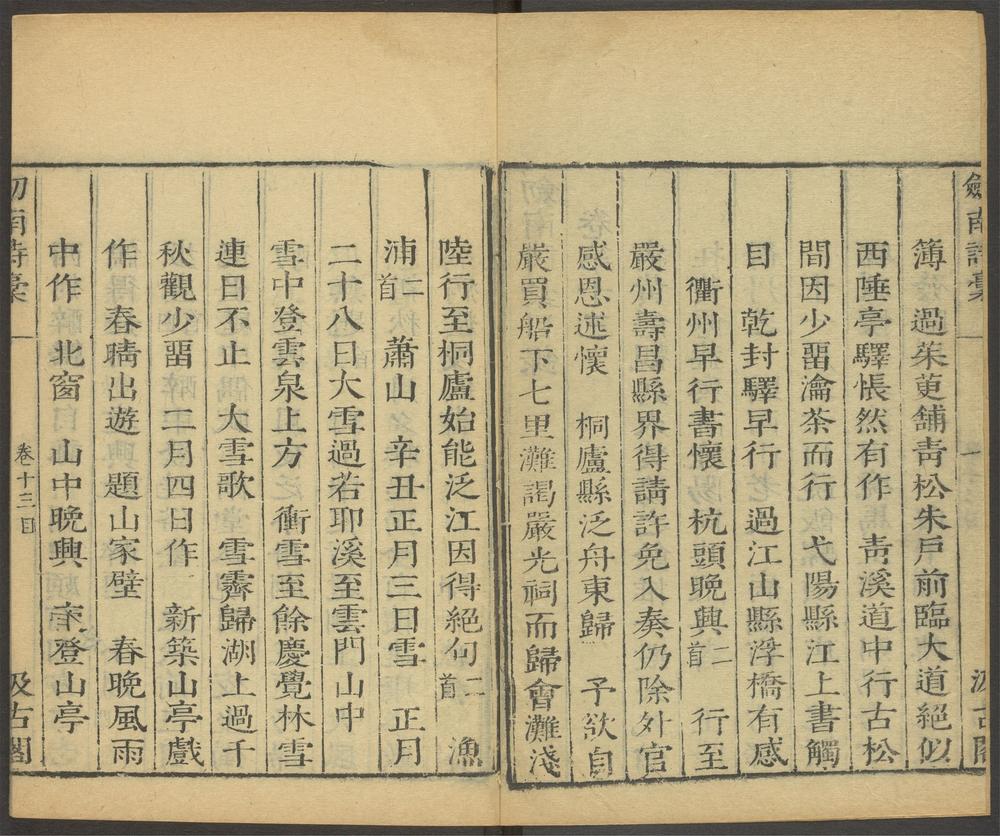 劒南詩稾 一 汲古閣
簿 過茱萸舖青松朱戶前臨大道絕似
西陲亭驛悵然有作 青溪道中行古松
間因少畱瀹茶而行 弋陽縣江上書觸
目 乾封驛早行 過江山縣浮橋有感
衢州早行書懷 杭頭晚興二首 行至
嚴州壽昌縣界得請許免入奏仍除外官
感恩述懷 桐廬縣泛舟東歸 予欲自
嚴買船下七里灘謁嚴光祠而歸會灘淺
陸行至桐廬始能泛江因得絕句二首 漁
浦二首 蕭山 辛丑正月三日雪 正月
二十八日大雪過若耶溪至雲門山中
雪中登雲泉上方 衝雪至餘慶覺林雪
連日不止 大雪歌 雪霽歸湖上過千
秋觀少畱 二月四日作 新築山亭戲
作 春晴出遊 題山家壁 春晚風雨
中作 北窗 山中晚興 夜登山亭
劒南詩稾 一 卷十三目 汲古閣